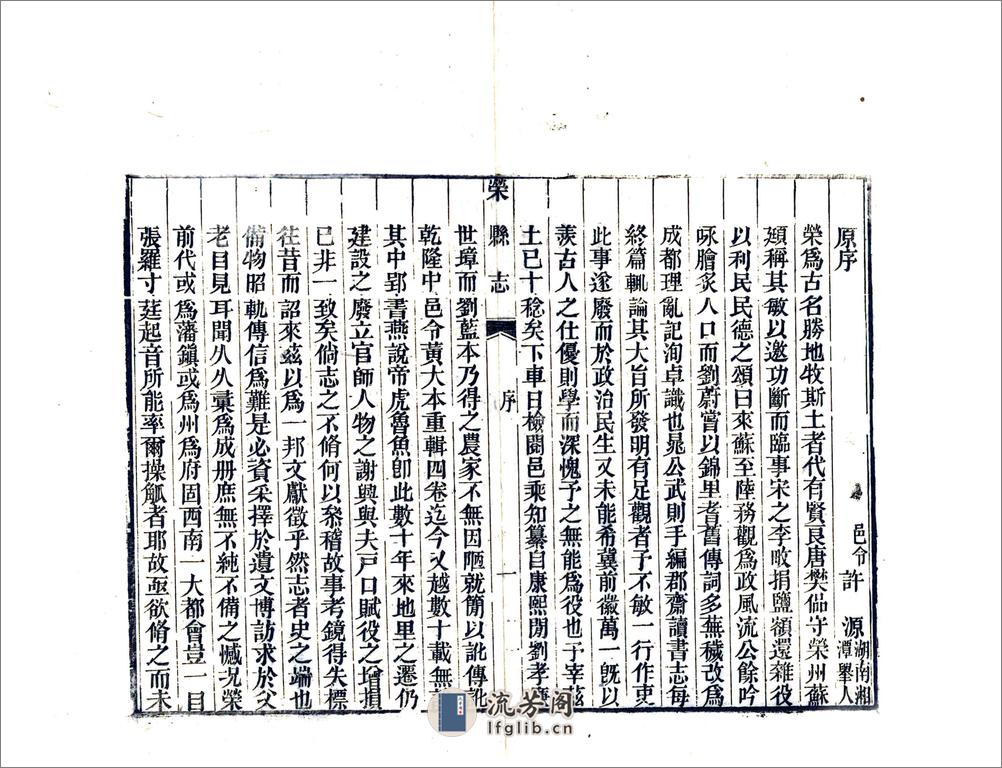 原序
邑令許　源湖南湘潭舉人
榮爲古名勝地牧斯土者代有賢良唐樊偘守榮州蘇
頲稱其敏以邀功斷而臨事宋之李畋捐鹽額還雜役
以利民民德之頌曰來蘇至陸務觀爲政風流公餘吟
咏膾炙人口而劉蔚嘗以錦里耆舊傳詞多蕪穢改爲
成都理亂記洵卓識也晁公武則手編郡齋讀書志每
終篇輒論其大旨所發明有足觀者予不敏一行作吏
此事遂廢而於政治民生又未能希冀前徽萬一旣以
羨古人之仕優則學而深愧予之無能爲役也予宰茲
土已十稔矣下車日檢閱邑乘知纂自康熙閒劉孝
榮縣志
序
一
世璋而劉藍本乃得之農家不無因陋就簡以訛傳訛
乾隆中邑令黃大本重輯四卷迄今又越數十載無
其中郢書燕說帝虎魯魚卽此數十年來地里之遷仍
建設之廢立官師人物之謝興與夫戸口賦役之增損
已非一致矣倘志之不脩何以叅稽故事考鏡得失標
往昔而詔來茲以爲一邦文獻徵乎然志者史之端也
備物昭軌傳信爲難是必資采擇於遺文博訪求於父
老目見耳聞久久彙爲成册庶無不純不備之憾况榮
前代或爲藩鎭或爲州爲府固西南一大都會豈一目
張羅寸莛起音所能率爾操觚者耶故亟欲脩之而未
流芳阁
lfglib.cn